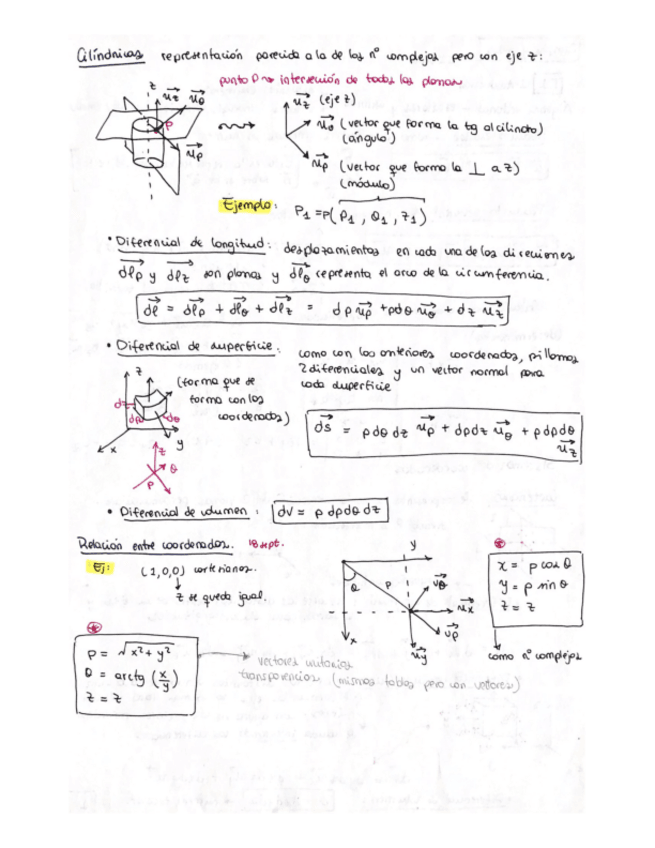 Cilíndricas representación parecida a la de los nº complejos pero con eje z:
punto P → intersección de todos los planos
z
uz uθ
P
uρ
uz (eje z)
uθ (vector que forma la tg al cilindro)
(ángulo)
uρ (vector que forma la ⊥ a z)
(módulo)
Ejemplo: P1 = P(ρ1, θ1, z1)
• Diferencial de longitud: desplazamientos en cada una de las direcciones
dlρ y dlz son planos y dlθ representa el arco de la circunferencia.
dl = dlρ + dlθ + dlz = dρ uρ + ρdθ uθ + dz uz
• Diferencial de superficie: como con las anteriores coordenadas, pillamos
2 diferenciales y un vector normal para
cada superficie
z
(forma que se
forma con las
coordenadas)
dz
dρ dθ
x
y
z
θ
ρ
ds = ρdθdz uρ + dρdz uθ + ρdρdθ
uz
• Diferencial de volumen: dV = ρ dρdθdz
Relación entre coordenadas. 18 sept.
Ej: (1,0,0) cartesianas.
z se queda igual.
y
θ
ρ
uθ
ux
uρ
uy
x
x = ρ cos θ
y = ρ sin θ
z = z
como nº complejos
ρ = √x²+y²
θ = arctg (x/y)
z = z
vectores unitarios
transparencias (mismas tablas pero con vectores)